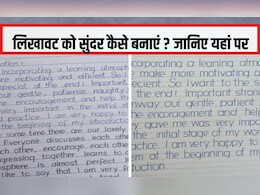 लिखावट को सुंदर कैसे बनाएं ? जानिए यहां पर
Incorporating a learning atmosph
ore motivating and efficient. So I
special at the end! Important
our patience naughty
the encouragement and help
very important in the initial
of practice. I am very happy
the beginning of my introductio
some time there are our lovely
Everyone discusses each other
others, encourage each other
progressing together, learn's
osphere is almost perfect
like to say that I am very
corporating a learning atmosp
make more motivating a
ecient. So I want to the s
the end! Important strang
away our gentle, patient
encouragement and help
ey gave me was very impor
the initial stage of my wor
practice. I am very happy to
em at the beginning of m
duction.